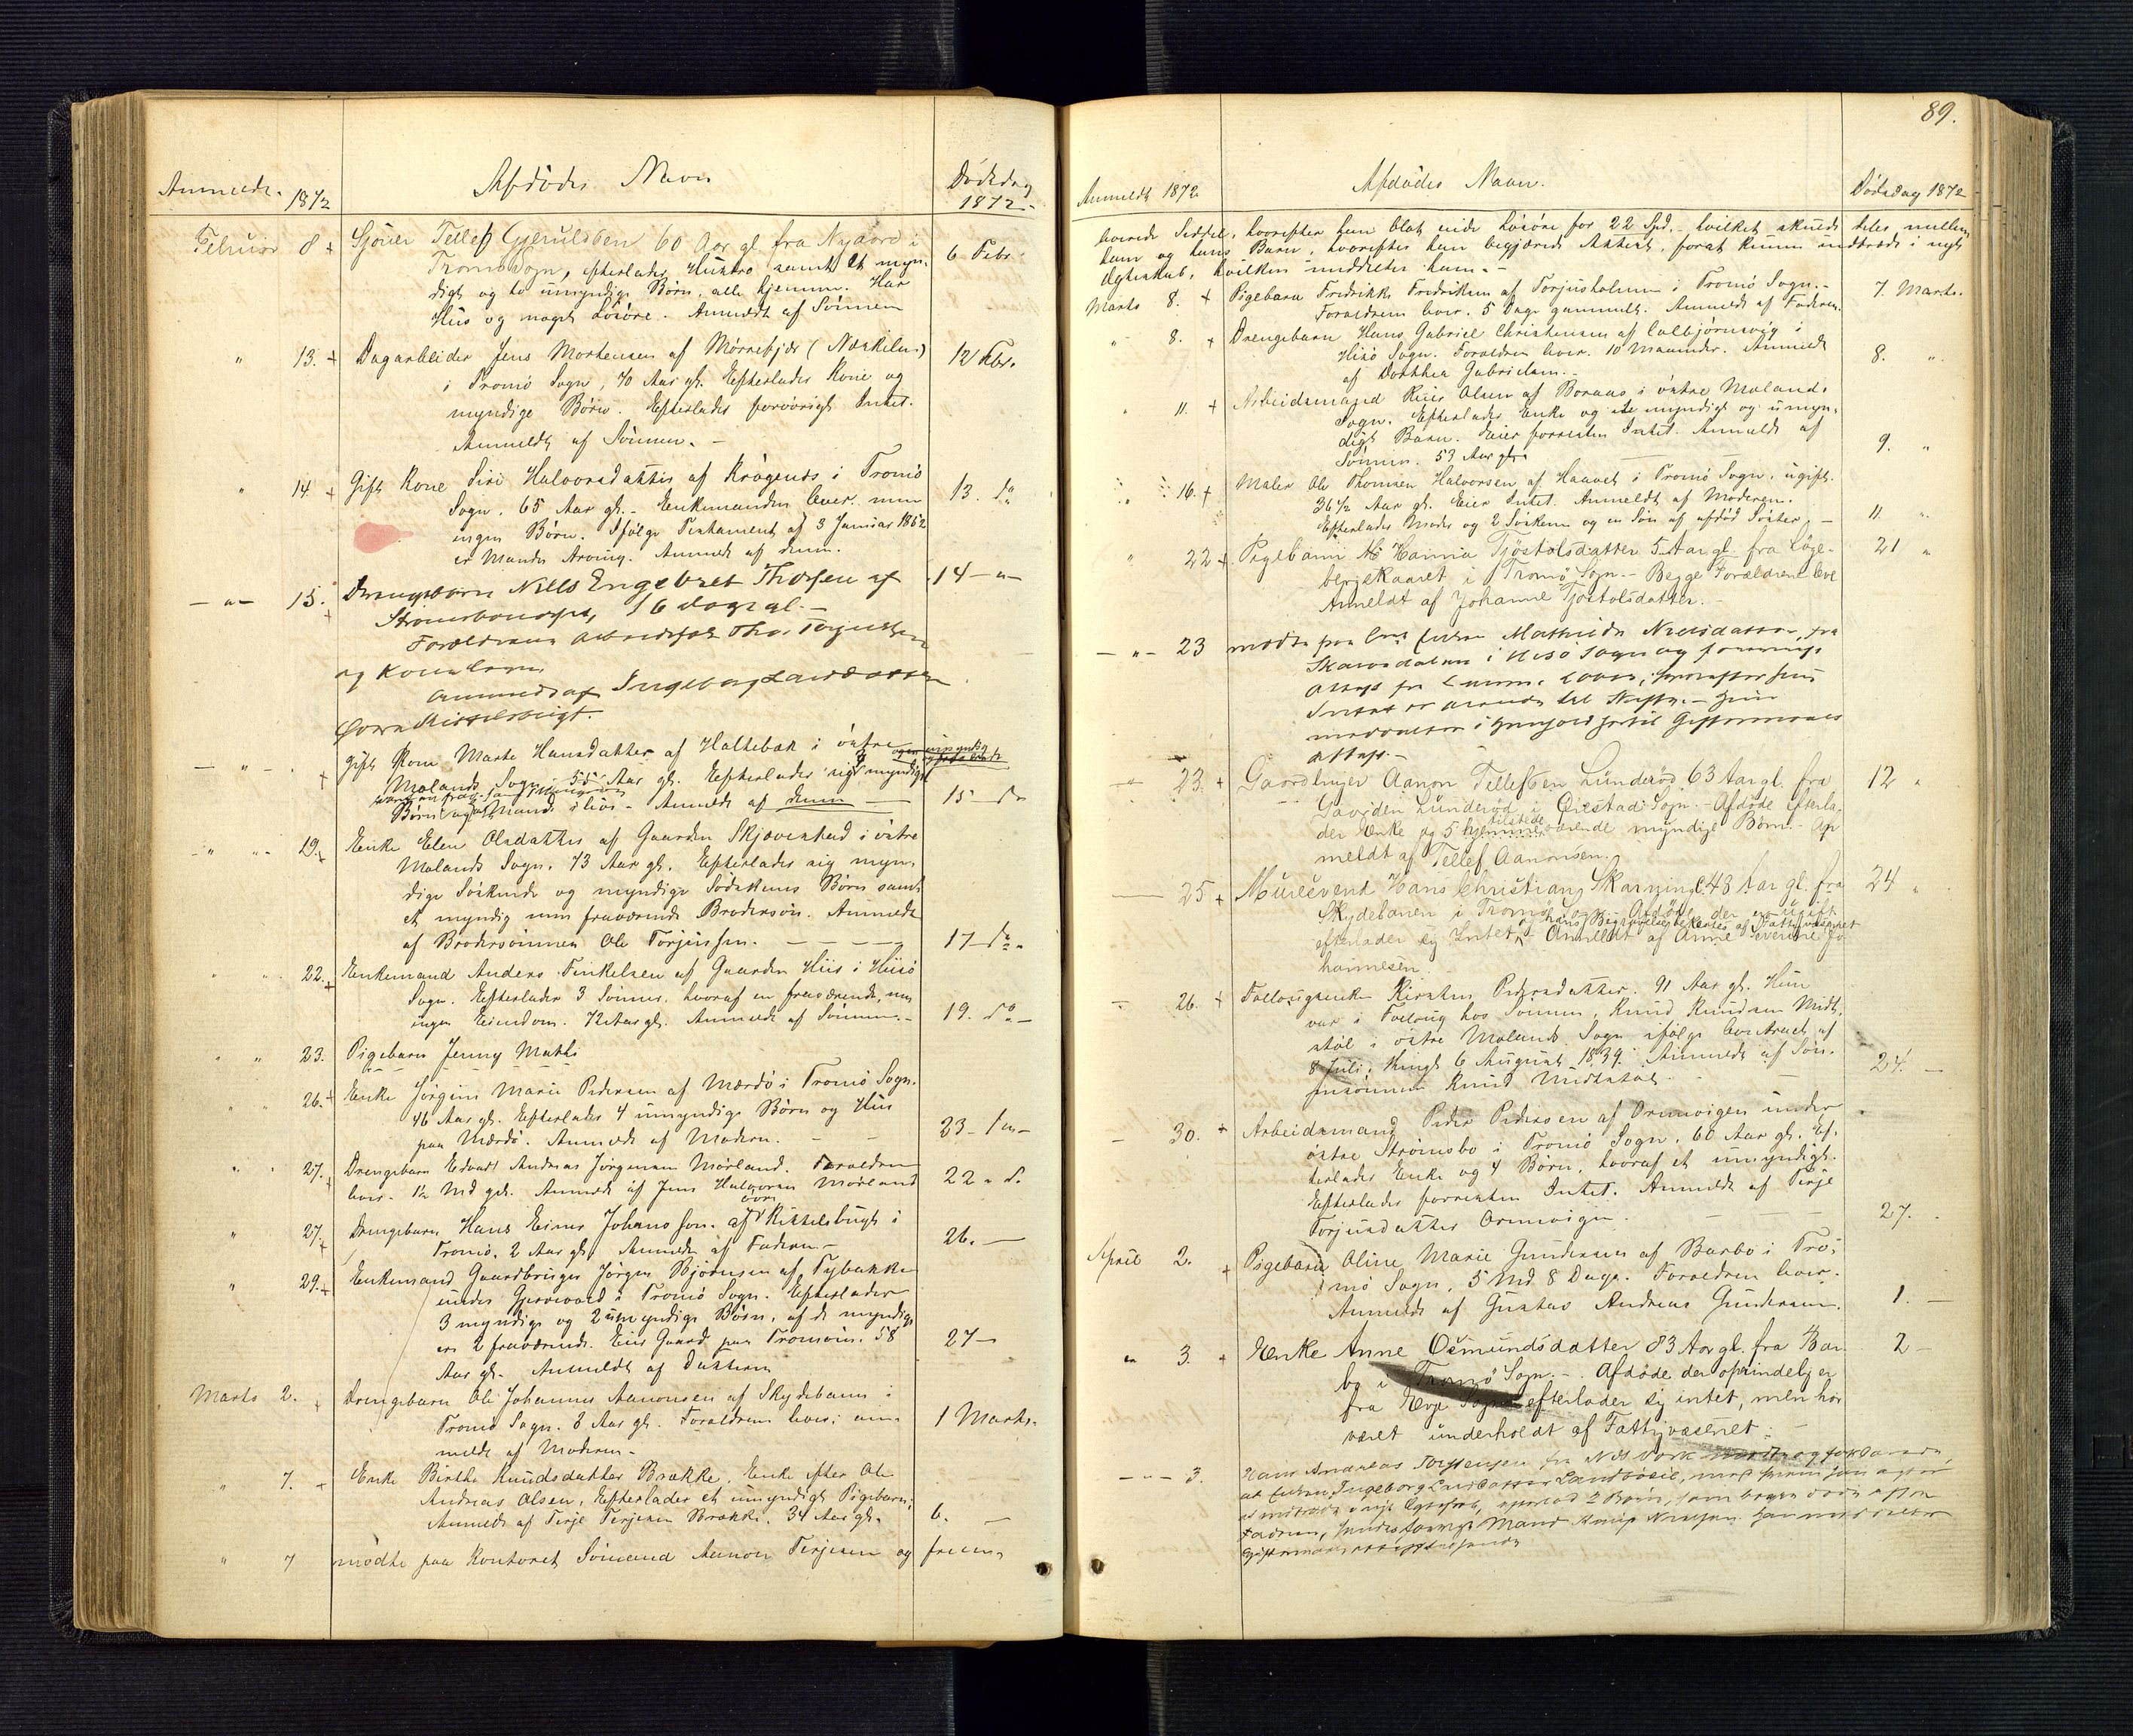 Anmeldt. 1872
Afdødes Navn
Dødsdag
1872.
Februar 8 + Sjöuer Tellef Gjeruldsen 60 Aar gl. fra Nygaard i
Tromö Sogn, efterlader Hustro samt et myn-
digt og to umyndige Børn, alle hjemme. Har
6 Febr.
Huus og noget Løsöre. Anmeldt af Sønnen
" 13. + Dagarbeider Jens Mortensen af Mørrefjær (Næskilen)
12 Febr.
i Tromö Sogn, 70 Aar gl. Efterlader Kone og
myndige Börn. Efterlader forøvrigt Intet.
Anmeldt af Sönnen. -
" 14 + Gift Kone Siri Halvorsdatter af Krögenes i Tromö
Sogn. 65 Aar gl. - Enkemanden lever. men
13. do
ingen Børn. Ifølge Testament af 3 Januar 1862
er Manden Arving. Anmeldt af denne.
— " — 15. + Drengebarn Niels Engebret Thorsen af
14 — " —
Strömsbonæset, 16 Dage gl. —
Forældrene Arbeidsfolk Tho. Torjussen
og Kone lever
Anmeldt af Ingeborg Larsdatter
Øvre Kittelsbugt.
— " — + Gift Kone Marte Hansdatter af Holtebæk i östre
Molands Sogn. 55 Aar gl. Efterlader sig 4 myndige
Börn og Mand i live - Anmeldt af denne —
15 do
— " — 19. + Enke Elen Olsdatter af Gaarden Skjævenhed i östre
Molands Sogn. 73 Aar gl. Efterlader sig myn-
dige Söskende og myndige Södskens Börn samt
et myndig men fraværende Brodersön. Anmeldt
af Brodersönnen Ole Torjussen. — — —
17 do.
" " 22. + Enkemand Anders Finkelsen af Gaarden Hiis i Hisö
Sogn. Efterlader 3 Sönner. hvoraf en fraværende, men
ingen Eiendom. 72 Aar gl. Anmeldt af Sönnen. -
19. do —
" " 23. Pigebarn Jenny Math
" " 26. + Enke Jörgine Marie Pedersen af Mærdö i Tromö Sogn.
46 Aar gl. Efterlader 4 umyndige Börn og Huus
paa Mærdö. Anmeldt af Moderen. — —
23
" " 27. + Drengebarn Edvart Andreas Jörgensen Mörland. Forældrene
lever. 1½ Md gl. Anmeldt af Jens Halvorsen Mörland
22 " d.
övre
" 27. + Drengebarn Hans Einer Johansson. af Kittelsbugt i
Tromö. 2 Aar gl. Anmeldt af Faderen —
26. —
" 29. + Enkemand Gaardbruger Jörgen Bjørnsen af Tybakken
under Gjerrevold i Tromö Sogn. Efterlader
3 myndige og 2 umyndige Börn, af de myndige
ere 2 fraværende. Eier Gaard paa Tromöen. 58
27 —
Aar gl. Anmeldt af Datteren
Marts 2. + Drengebarn Ole Johannes Aanonsen af Skydebanen i
Tromö Sogn. 8 Aar gl. Forældrene lever; an-
1 Marts.
meldt af Moderen —
" 7. + Enke Birthe Knudsdatter Brække. Enke efter Ole
Andreas Olsen, Efterlader et umyndigt Pigebarn,
Anmeldt af Terje Terjesen Brække. 34 Aar gl.
6. —
" 7 mödte paa Kontoret Sömand Aanon Terjesen og frem-
89.
Anmeldt 1872
Afdødes Navn.
Dödsdag 1872
leverede Seddel, hvorefter han blot eide Løsöre for 22 Spd. hvilket skulde deles mellem
ham og hans Barn, hvorefter han begjærede Attest, forat kunne indtræde i nyt
Ægteskab, hvilken meddeltes ham. —
Marts 8. + Pigebarn Fredrikke Fredriksen af Torjusholmen i Tromö Sogn. —
7. Marts.
Forældrene lever. 5 Dage gammelt. Anmeldt af Faderen.
" 8. + Drengebarn Hans Gabriel Christensen af Colbjörnsvig i
Hisö Sogn. Forældrene lever. 10 Maaneder. Anmeldt
8. "
af Dorthea Gabrielsen. —
" 11. + Arbeidsmand Reier Olsen af Boraas i östre Molands
Sogn. Efterlader Enke og myndigt og umyn-
digt Barn. Eier forresten Intet. Anmeldt af
9. "
Sönnen. 53 Aar gl.
" 16. + Maler Ole Thomsen Halvorsen af Haavet i Tromö Sogn, ugift.
36½ Aar gl. Eier Intet. Anmeldt af Moderen.
Efterlader Moder og 2 Søskene og en Sön af afdöd Söster. —
11. "
" 22 + Pigebarn Hanna Tjøstolsdatter 5 Aar gl. fra Løge-
21 "
bergekaaret i Tromö Sogn. — Begge Forældrene leve
Anmeldt af Johanne Tjøstolsdatter. —
— " — 23 mødte paa Enke Mathilde Nielsdatter, fra
i Hisø Sogn og foreviste
Attest fra Lensm.
Intet er at Skifte. —
Attest. —
— " — 23. + Gaardbruger Aanon Tellefsen Lunderød 63 Aar gl. fra
12 "
Gaarden Lunderød i Øiestad Sogn. — Afdøde efterla-
der Enke og 5 tilstedeværende myndige Børn. — An-
meldt af Tellef Aanonsen.
25 + Muursvend Hans Christian Skarning 48 Aar gl. fra
24 "
Skydebanen i Tromö Sogn. Afdøde, der er ugift
efterlader sig Intet, hans Begravelse bekostes af Fattigvæsenet
Anmeldt af Anne Severine Jo-
hannesen.
— 26. + Follougsenke Kirsten Pedersdatter. 91 Aar gl. Hun
var i Follaug hos Sönnen, Knud Knudsen Midt-
stöl i östre Molands Sogn ifølge Contract af
8 Juli, thingl. 6 August 1839. Anmeldt af Søn-
24. —
nesönnen Knud Midtstöl.
— 30. + Arbeidsmand Peder Pedersen af Ormvigen under
östre Strömsbo i Tromö Sogn. 60 Aar gl. Ef-
terlader Enke og 4 Börn, hvoraf et umyndigt.
Efterlader forresten Intet. Anmeldt af Terje
Torjusdatter Ormvigen.
27.
April 2. + Pigebarn Oline Marie Gundersen af Barbo i Tro-
mö Sogn, 5 Md. 8 Dage. Forældrene lever.
Anmeldt af Gustav Andreas Gundersen.
1. —
" 3. + Enke Anne Osmundsdatter 83 Aar gl. fra Bar-
2 —
bo i Tromö Sogn. — Afdøde der oprindelig er
fra Evje Sogn efterlader sig intet, men har
været underholdt af Fattigvæsenet.
— " — 3. Hans Andreas Torjussen fra Næs Værk
at Enken Ingeborg Larsdatter
i nyt Ægteskab, 2 Børn,
Faderen, hendes Mand